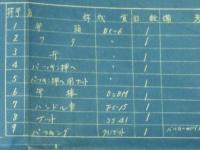 符号 名 称 材質 個数 備考
1 弁 箱 BC-6 1
2 フタ 〃 1
3 弁 〃 1
4 パッキン押へ 〃 1
5 パッキン押へ用ナット 〃 1
6 弁棒 1
7 ハンドル車 FC-15 1
8 ナット SS41 1
9 パッキング 1